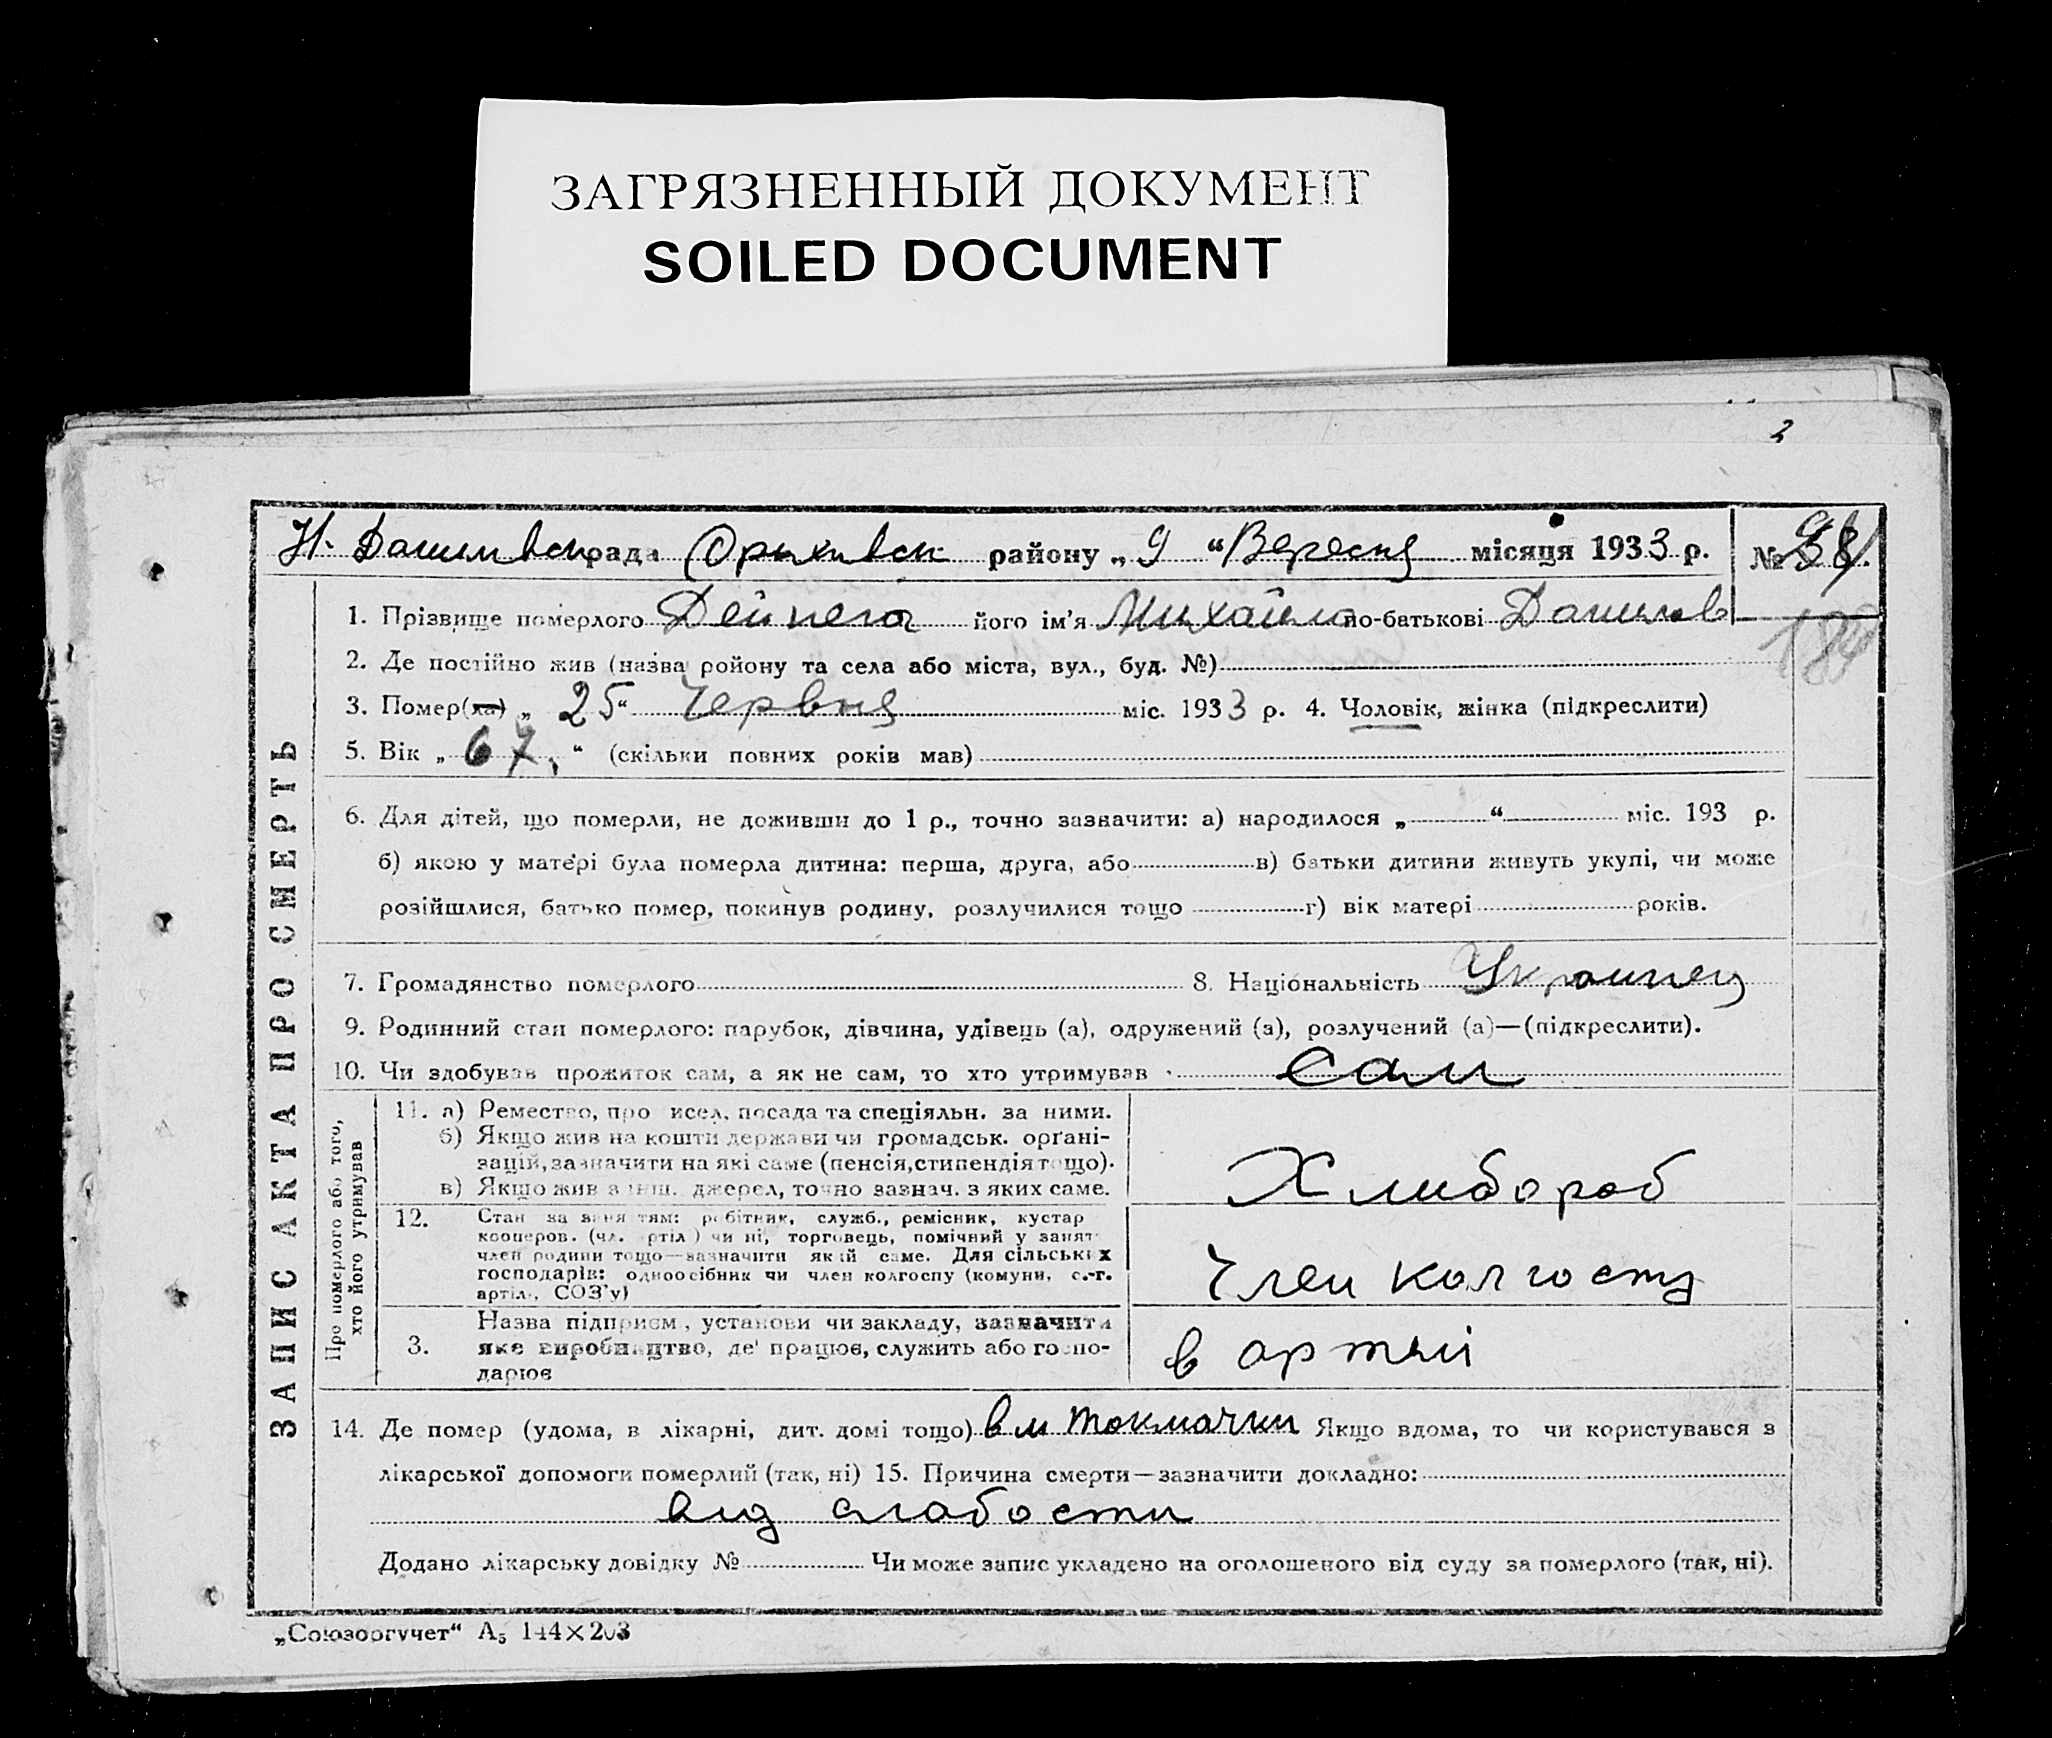 ЗАГРЯЗНЕННЫЙ ДОКУМЕНТ
SOILED DOCUMENT
Н. Данилівськ рада Оріхівськ району „ 9 “ Вересня місяця 1933 р. №
184
ЗАПИС АКТА ПРО СМЕРТЬ
1. Прізвище померлого Дейнега його ім'я Михайло по-батькові Данилов
2. Де постійно жив (назва ройону та села або міста, вул., буд. №)
3. Помер(ла) „ 25 “ Червня міс. 1933 р. 4. Чоловік, жінка (підкреслити)
5. Вік „ 67. “ (скільки повних років мав)
6. Для дітей, що померли, не доживши до 1 р., точно зазначити: а) народилося „ “ міс. 193 р.
б) якою у матері була померла дитина: перша, друга, або в) батьки дитини живуть укупі, чи може
розійшлися, батько помер, покинув родину, розлучилися тощо г) вік матері років.
7. Громадянство померлого 8. Національність Украинец
9. Родинний стан померлого: парубок, дівчина, удівець (а), одружений (а), розлучений (а)—(підкреслити).
10. Чи здобував прожиток сам, а як не сам, то хто утримував сам
Про померлого або того, хто його утримував
11. а) Ремество, про исел, посада та спеціяльн. за ними.
б) Якщо жив на кошти держави чи громадськ. орґані-
зацій, зазначити на які саме (пенсія, стипендія тощо).
в) Якщо жив з інш. джерел, точно зазнач. з яких саме.
Хлибороб
12. Стан за заняттям: робітник, служб., ремісник, кустар
кооперов. (чл. артіл) чи ні, торговець, помічний у занят
член родини тощо—зазначити який саме. Для сільських
господарів: одноосібник чи член колгоспу (комуни, с.-г.
артіл., СОЗ'у)
Член колгоспу
3. Назва підприєм, установи чи закладу, зазначити
яке виробництво, де працює, служить або госпо-
дарює
в артилі
14. Де помер (удома, в лікарні, дит. домі тощо) в м Токмачки Якщо вдома, то чи користувався з
лікарської допомоги померлий (так, ні) 15. Причина смерти—зазначити докладно:
вид слабости
Додано лікарську довідку № Чи може запис укладено на оголошеного від суду за померлого (так, ні).
„Союзоргучет“ А₅ 144×203